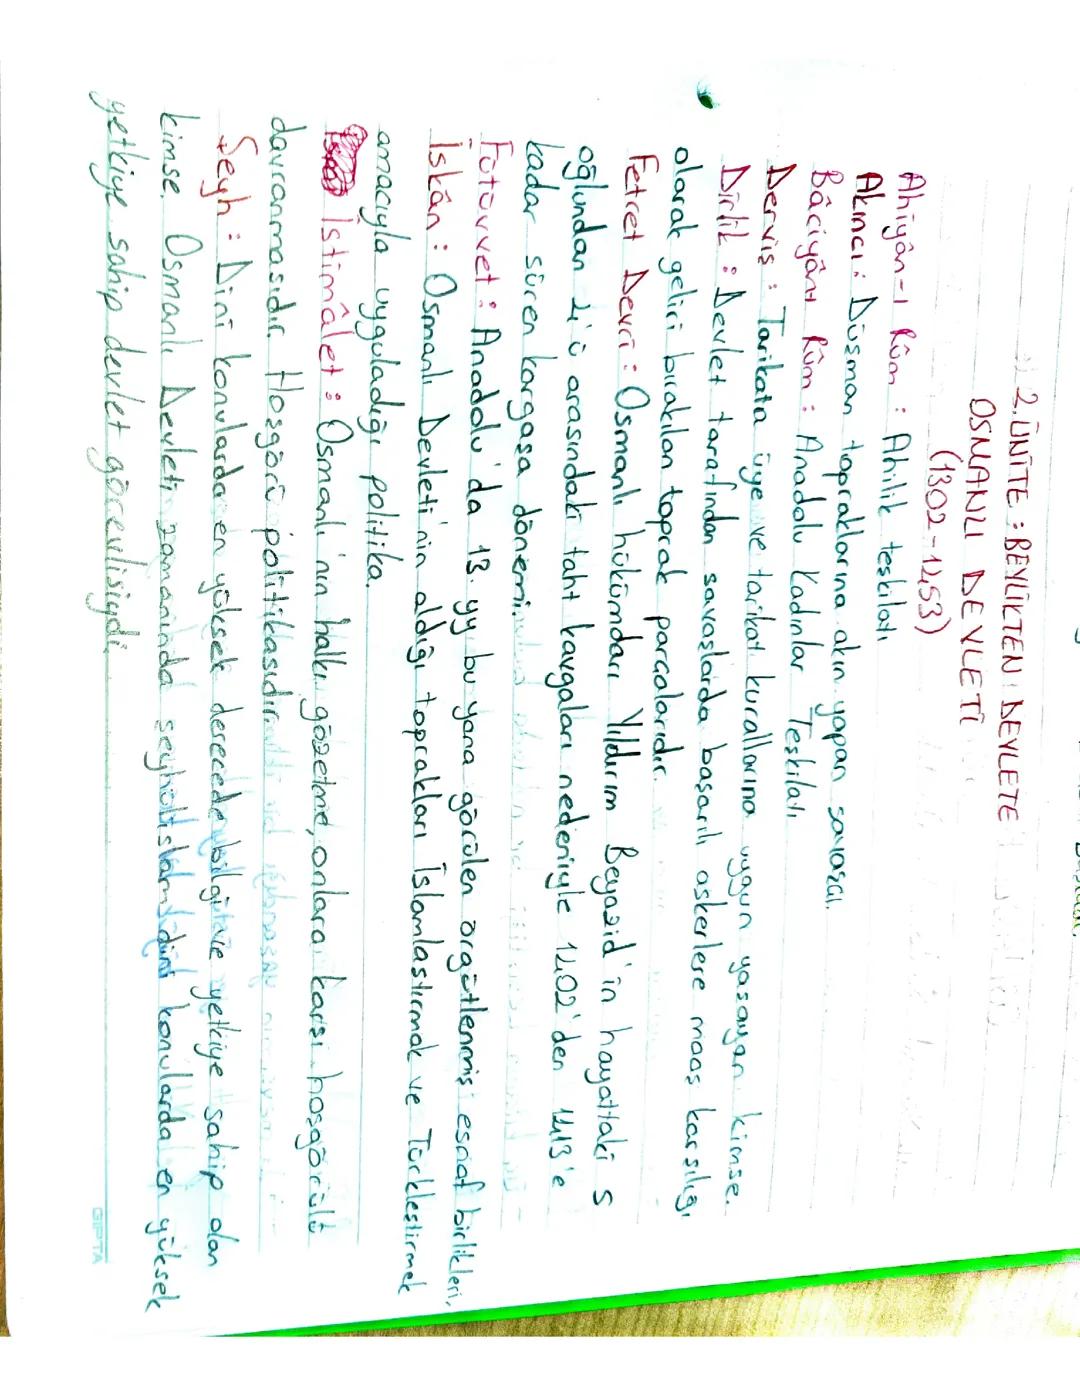 2.ÜNİTE : BEYLİKTEN DEVLETE
OSMANLI DEVLETİ
(1302-1453)
Ahiyân-ı Rûm : Ahilik teşkilatı
Akıncı : Düşman topraklarına akın yapan savaşçı.
Bâciyân Rûm : Anadolu Kadınlar Teşkilatı
Derviş : Tarikata üye ve tarikat kurallarına uygun yaşayan kimse.
Dirlik : Devlet tarafından savaşlarda başarılı askerlere maaş karşılığı
olarak geliri bırakılan toprak parçalarıdır.
Fetret Devri : Osmanlı hükümdarı Yıldırım Beyazid'in hayattaki 5
oğlundan 4'ü arasındaki taht kavgaları nedeniyle 1402'den 1413'e
kadar süren kargaşa dönemi.
Fütüvvet : Anadolu'da 13. yy bu yana görülen örgütlenmiş esnaf birlikleri.
İskân : Osmanlı Devleti'nin aldığı toprakları İslamlaştırmak ve Türkleştirmek
amacıyla uyguladığı politika.
İstimâlet : Osmanlı'nın halkı gözetme, onlara karşı hoşgörülü
davranmasıdır Hoşgörü politikasıdır.
Şeyh : Dini konularda en yüksek derecede bilgi ve yetkiye sahip olan
kimse. Osmanlı Devleti zamanında şeyhülislam dini konularda en yüksek
yetkiye sahip devlet görevlisiydi.
GIPTA